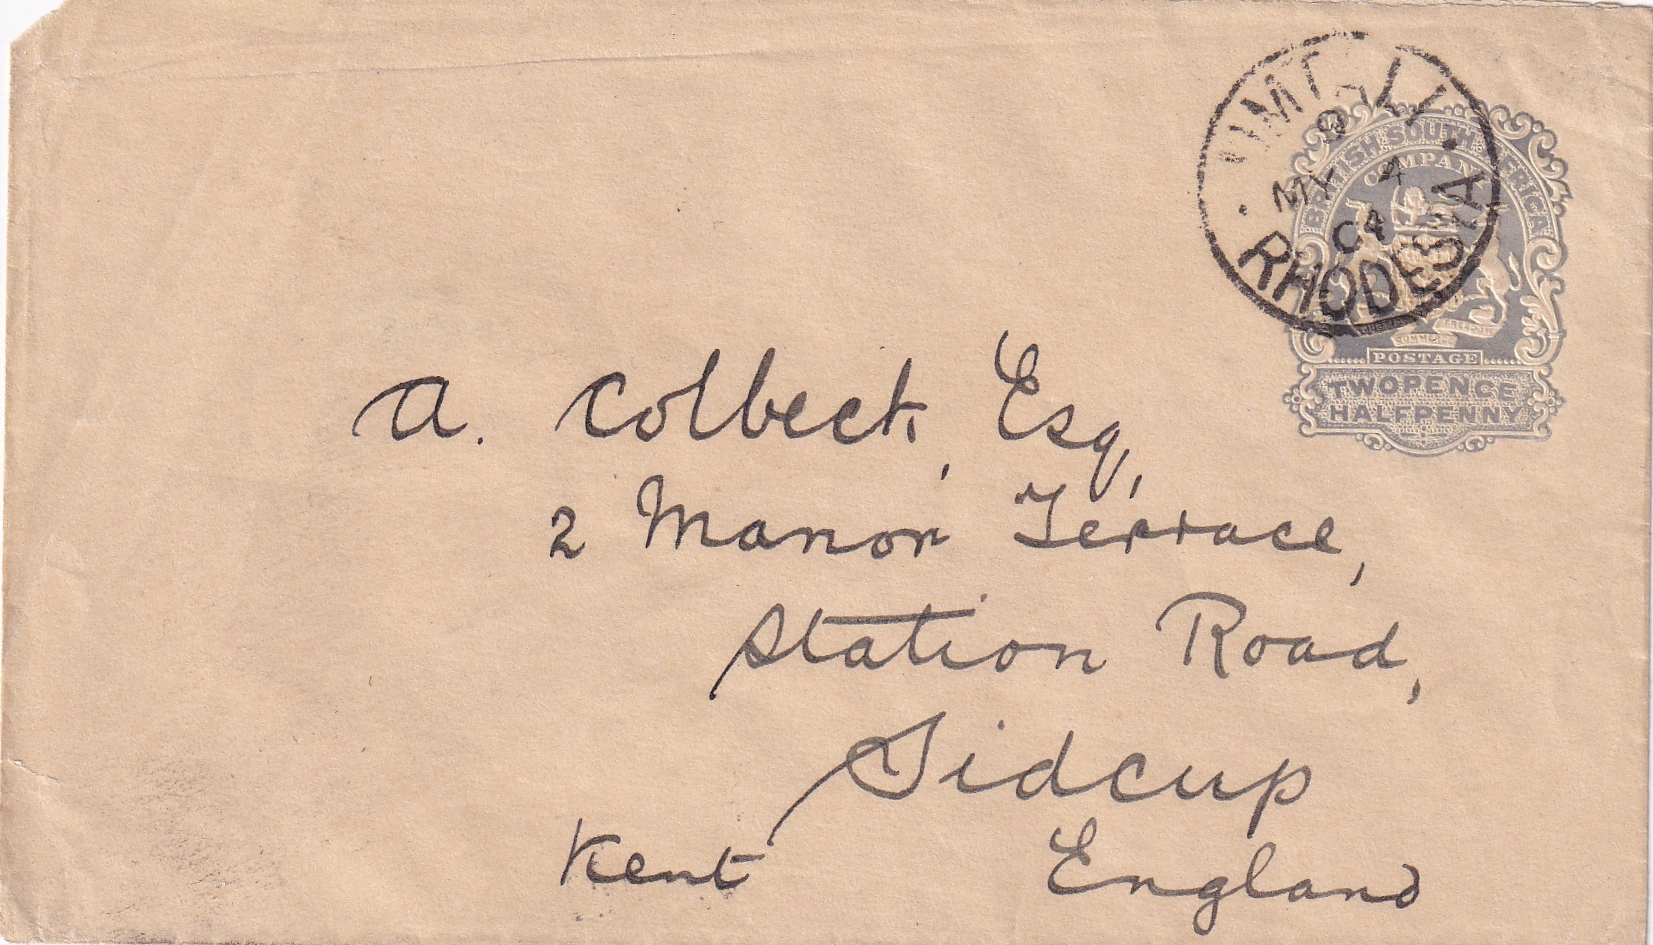 UMTALI
8
MY 4
04
RHODESIA
BRITISH SOUTH AFRICA
COMPANY
COMMERCE
POSTAGE
TWOPENCE
HALFPENNY
A. Colbeck, Esq,
2 Manor Terrace,
Station Road,
Sidcup
Kent England